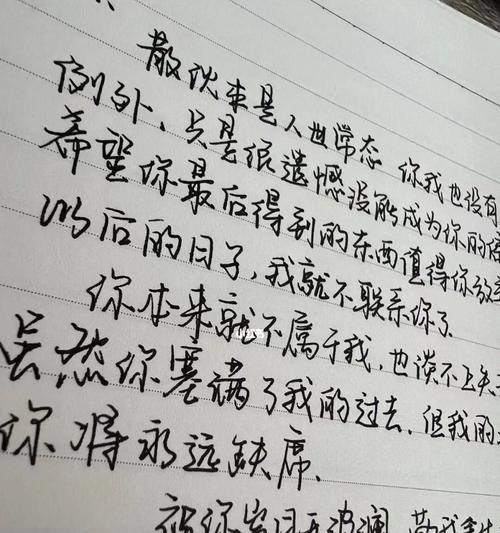 散伙本是人世常态 你我也没有
例外、只是很遗憾没能成为你的
希望你最后得到的东西值得你放
以后的日子,我就不联系你了
你本来就不属于我,也谈不上失
虽然你塞满了我的过去、但我的
你将永远缺席、
祝你岁月无波澜